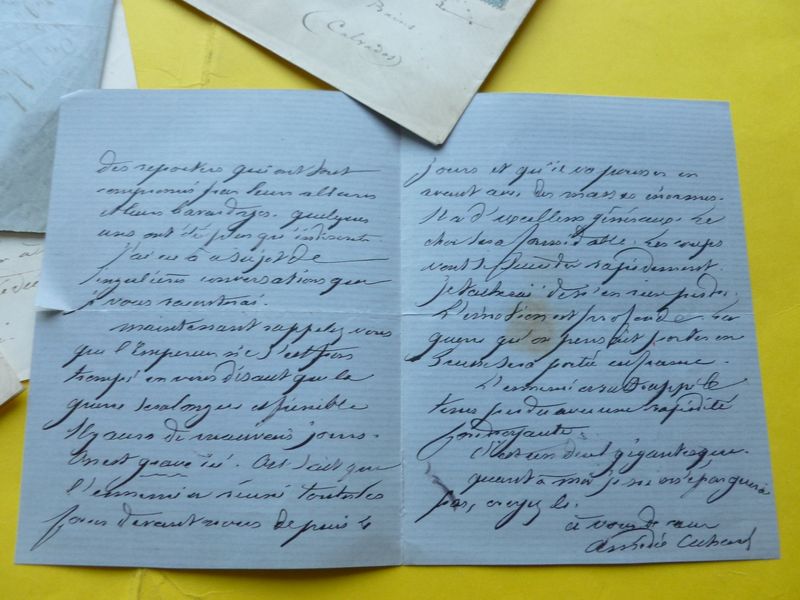 Bains
(Calvados)
des reporters qui ont tout
compromis par leurs allures
et leurs bavardages. quelques
uns ont été plus qu'indiscrets.
J'ai eu à ce sujet de
singulières conversations que
je vous raconterai.
maintenant rappelez vous
que l'Empereur ne s'est pas
trompé en vous disant que la
guerre sera longue et pénible
Il y aura de mauvais jours.
On est grave ici. On sait que
l'ennemi a réuni toutes les
forces devant nous depuis
jours et qu'il va pousser en
avant avec des masses énormes.
Il a d'excellens généraux. Le
choc sera formidable. Les coups
vont se succéder rapidement.
je tacherai de n'en rien perdre.
L'émotion est profonde. La
guerre qu'on pensait porter en
sera portée en france.
L'ennemi a rattrappé le
tems perdu avec une rapidité
foudroyante.
C'est un duel gigantesque.
quant à moi je ne m'épargnerai
pas, croyez le.
à vous de cœur